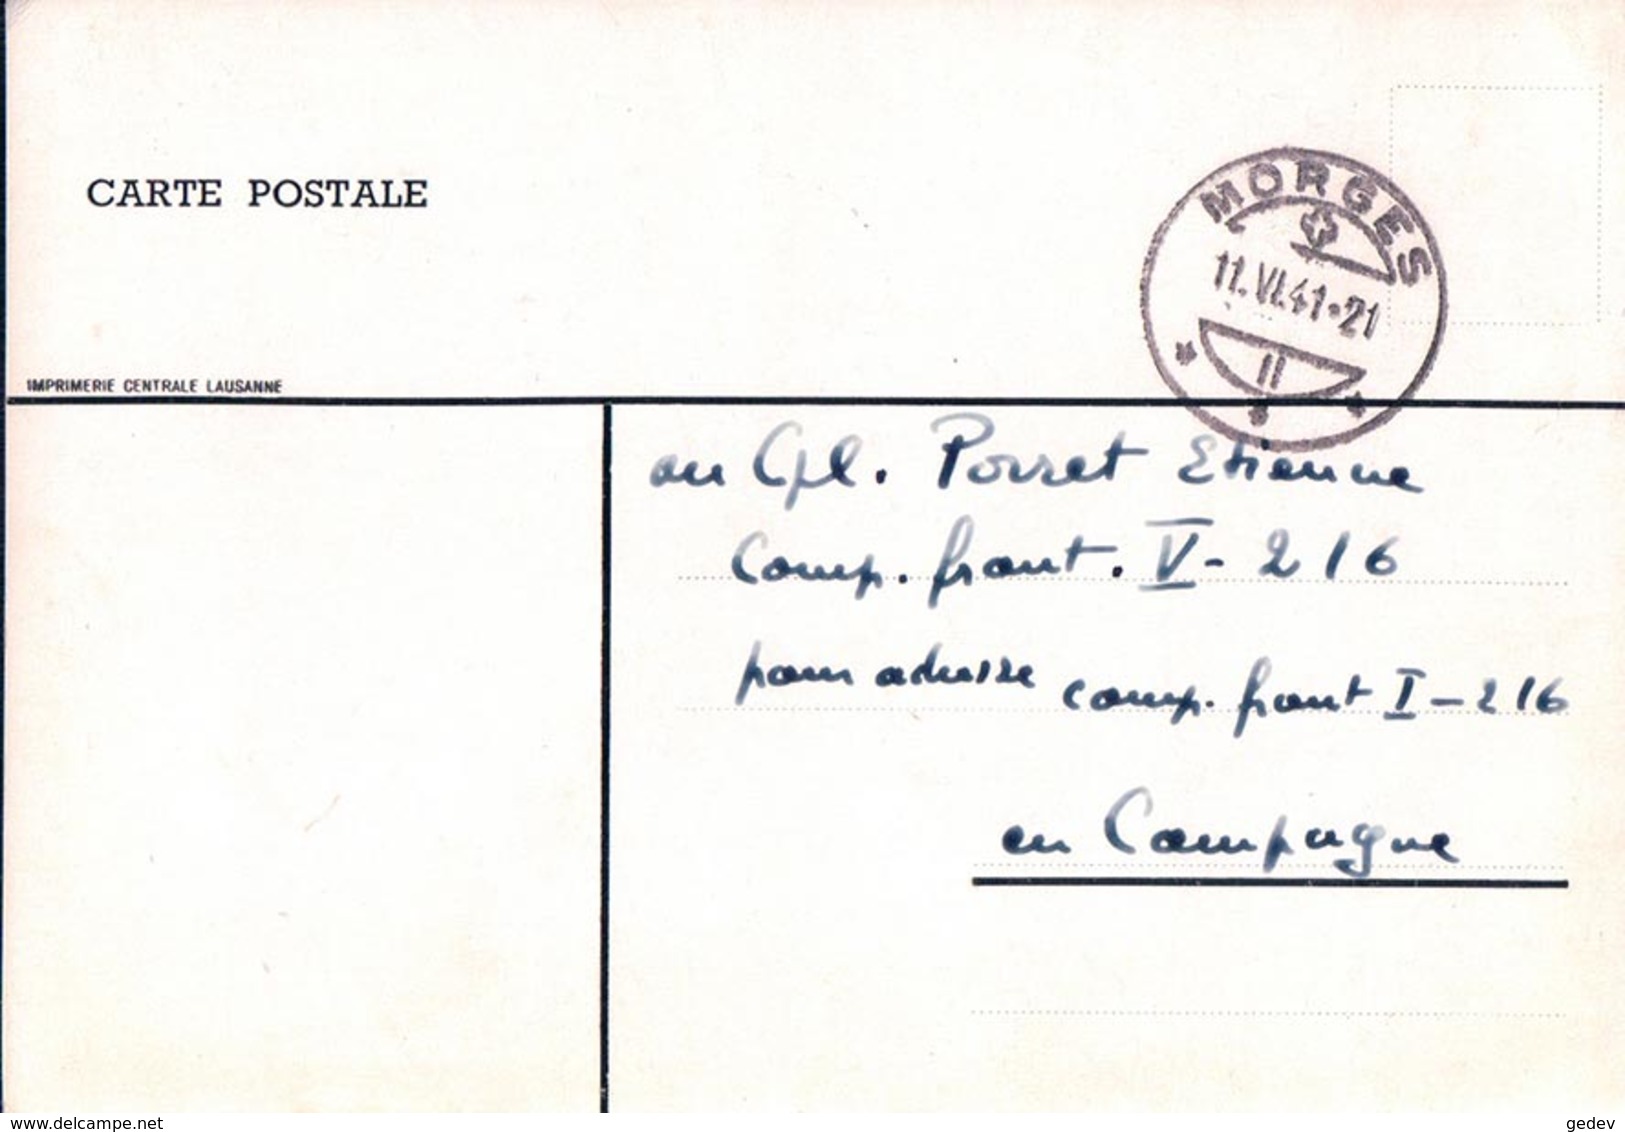 CARTE POSTALE
MORGES
11.VI.41-21
II
IMPRIMERIE CENTRALE LAUSANNE
au Cpl. Porret Etienne
Comp. front. V - 216
pour adresse comp. front I - 216
en Campagne
www.delcampe.net
gedev